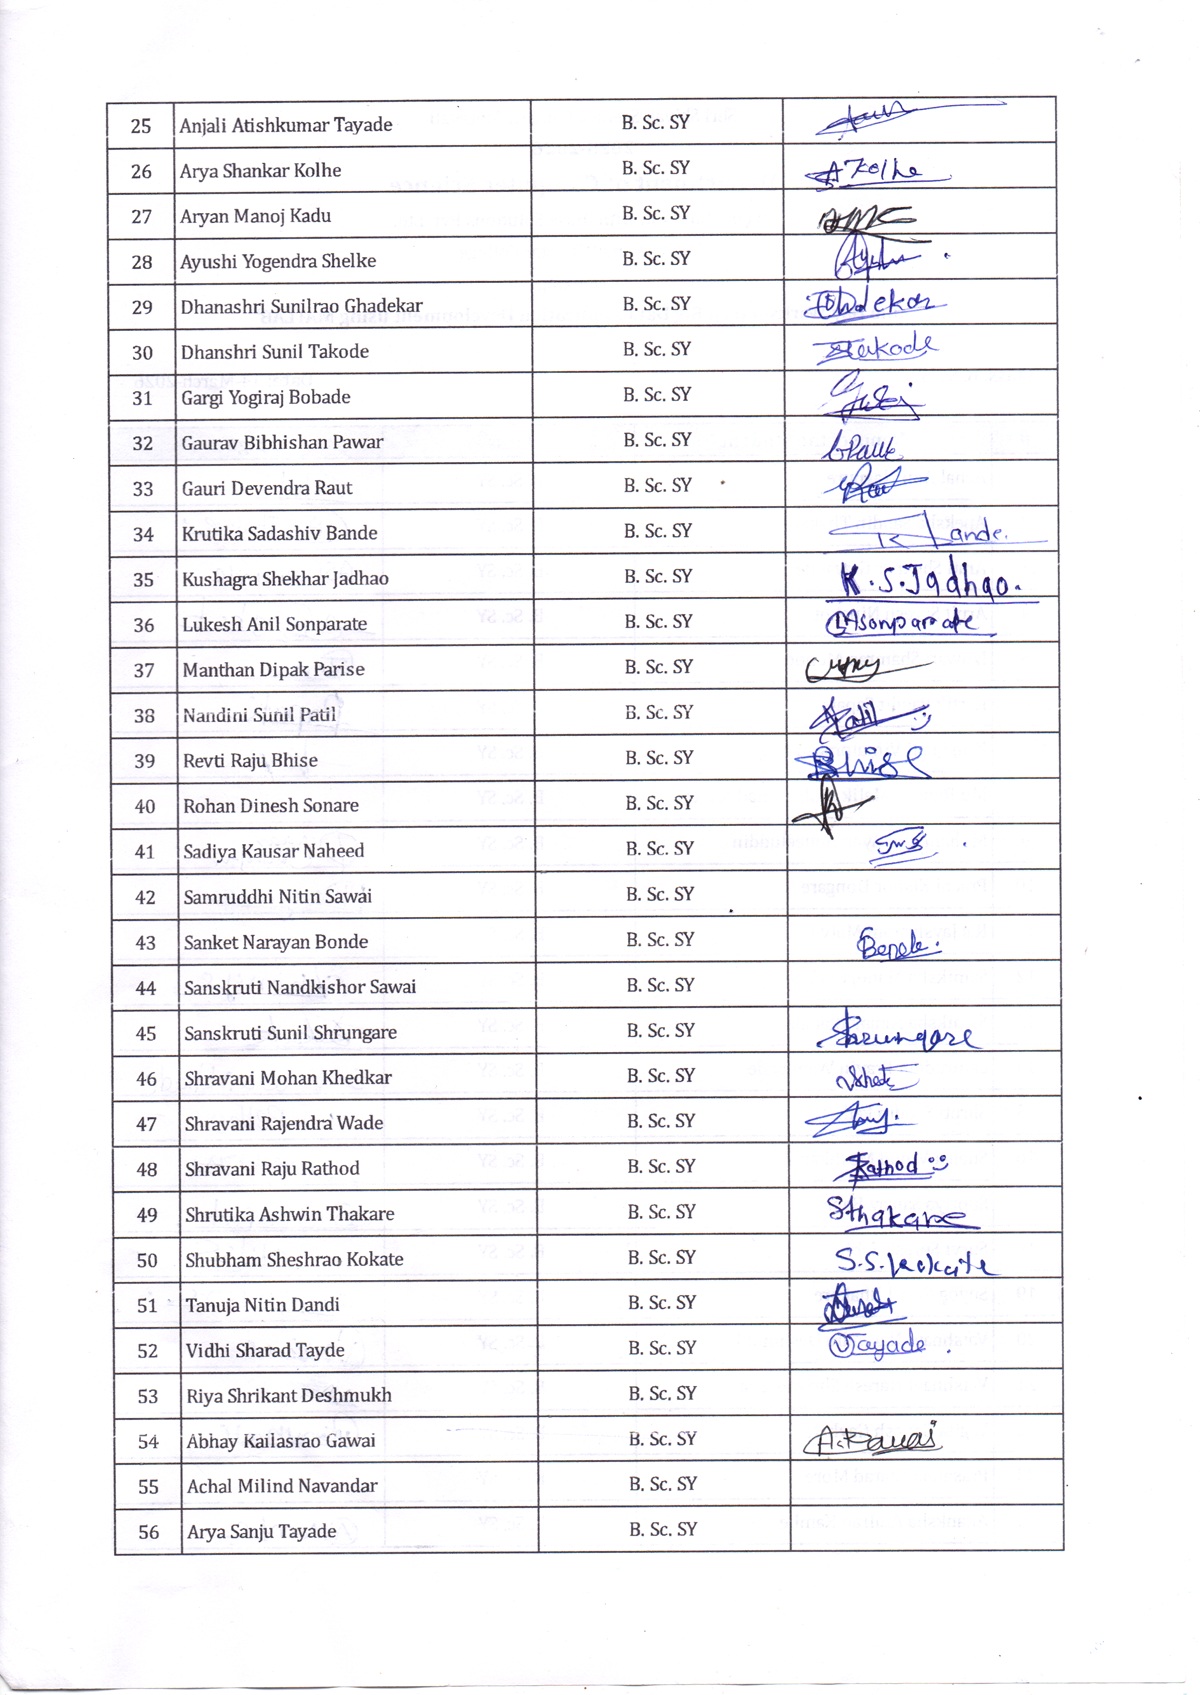 25 Anjali Atishkumar Tayade B. Sc. SY
26 Arya Shankar Kolhe B. Sc. SY A Kolhe
27 Aryan Manoj Kadu B. Sc. SY
28 Ayushi Yogendra Shelke B. Sc. SY
29 Dhanashri Sunilrao Ghadekar B. Sc. SY
30 Dhanshri Sunil Takode B. Sc. SY Takode
31 Gargi Yogiraj Bobade B. Sc. SY
32 Gaurav Bibhishan Pawar B. Sc. SY
33 Gauri Devendra Raut B. Sc. SY
34 Krutika Sadashiv Bande B. Sc. SY
35 Kushagra Shekhar Jadhao B. Sc. SY K.S.Jadhao.
36 Lukesh Anil Sonparate B. Sc. SY LASonparate
37 Manthan Dipak Parise B. Sc. SY
38 Nandini Sunil Patil B. Sc. SY Patil
39 Revti Raju Bhise B. Sc. SY Bhise
40 Rohan Dinesh Sonare B. Sc. SY
41 Sadiya Kausar Naheed B. Sc. SY
42 Samruddhi Nitin Sawai B. Sc. SY
43 Sanket Narayan Bonde B. Sc. SY
44 Sanskruti Nandkishor Sawai B. Sc. SY
45 Sanskruti Sunil Shrungare B. Sc. SY Shrungare
46 Shravani Mohan Khedkar B. Sc. SY
47 Shravani Rajendra Wade B. Sc. SY
48 Shravani Raju Rathod B. Sc. SY Rathod
49 Shrutika Ashwin Thakare B. Sc. SY SThakare
50 Shubham Sheshrao Kokate B. Sc. SY S.S.Kokate
51 Tanuja Nitin Dandi B. Sc. SY
52 Vidhi Sharad Tayde B. Sc. SY VTayade
53 Riya Shrikant Deshmukh B. Sc. SY
54 Abhay Kailasrao Gawai B. Sc. SY
55 Achal Milind Navandar B. Sc. SY
56 Arya Sanju Tayade B. Sc. SY